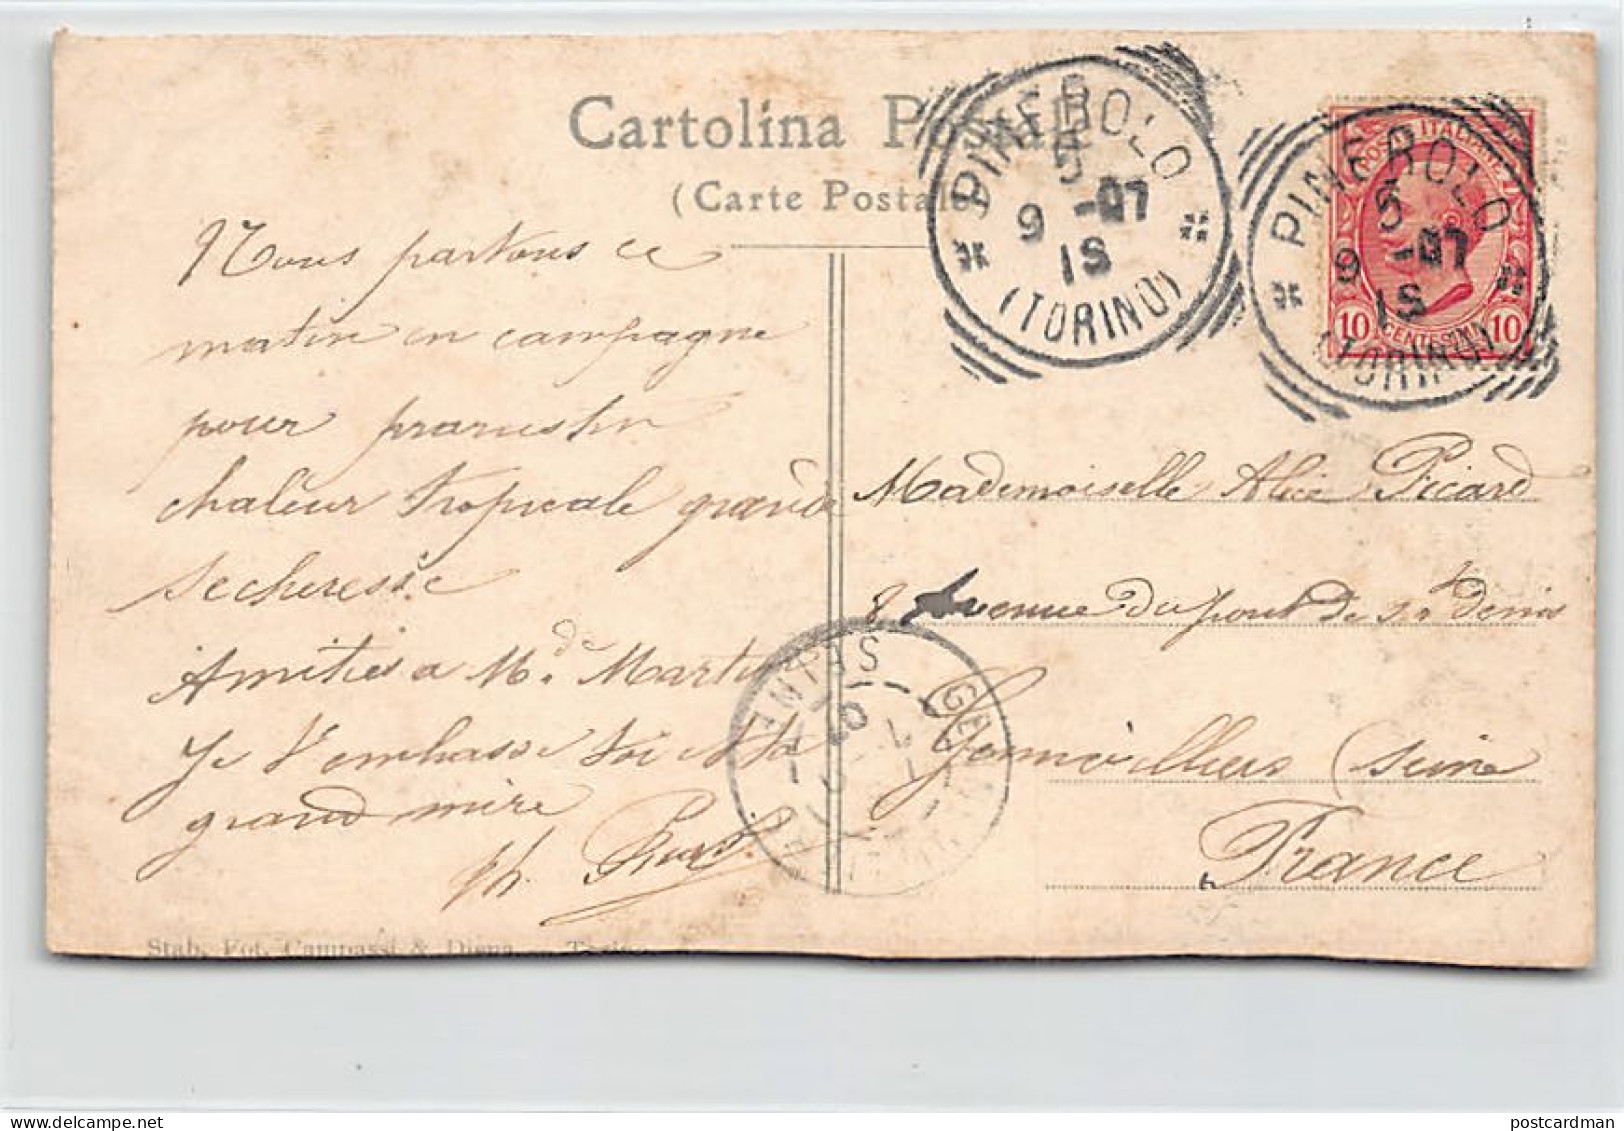 Cartolina Postale
(Carte Postale
PINEROLO
5
9 - 07
1S
(TORINO)
PINEROLO
5
9 - 07
1S
(TORINO)
POSTE ITALIANE
10 CENTESIMI 10
Nous partons ce
matin en campagne
pour pramstin
chaleur tropicale grande
secheresse
Amitiés a Md. Martin
Je t'embrasse toi et ta
grand mère
ph.
Mademoiselle Alice Picard
8 Avenue du pont de St denis
Gennevilliers (Seine
France
Stab. Fot. Campassi & Diena. — Torino
postcardman